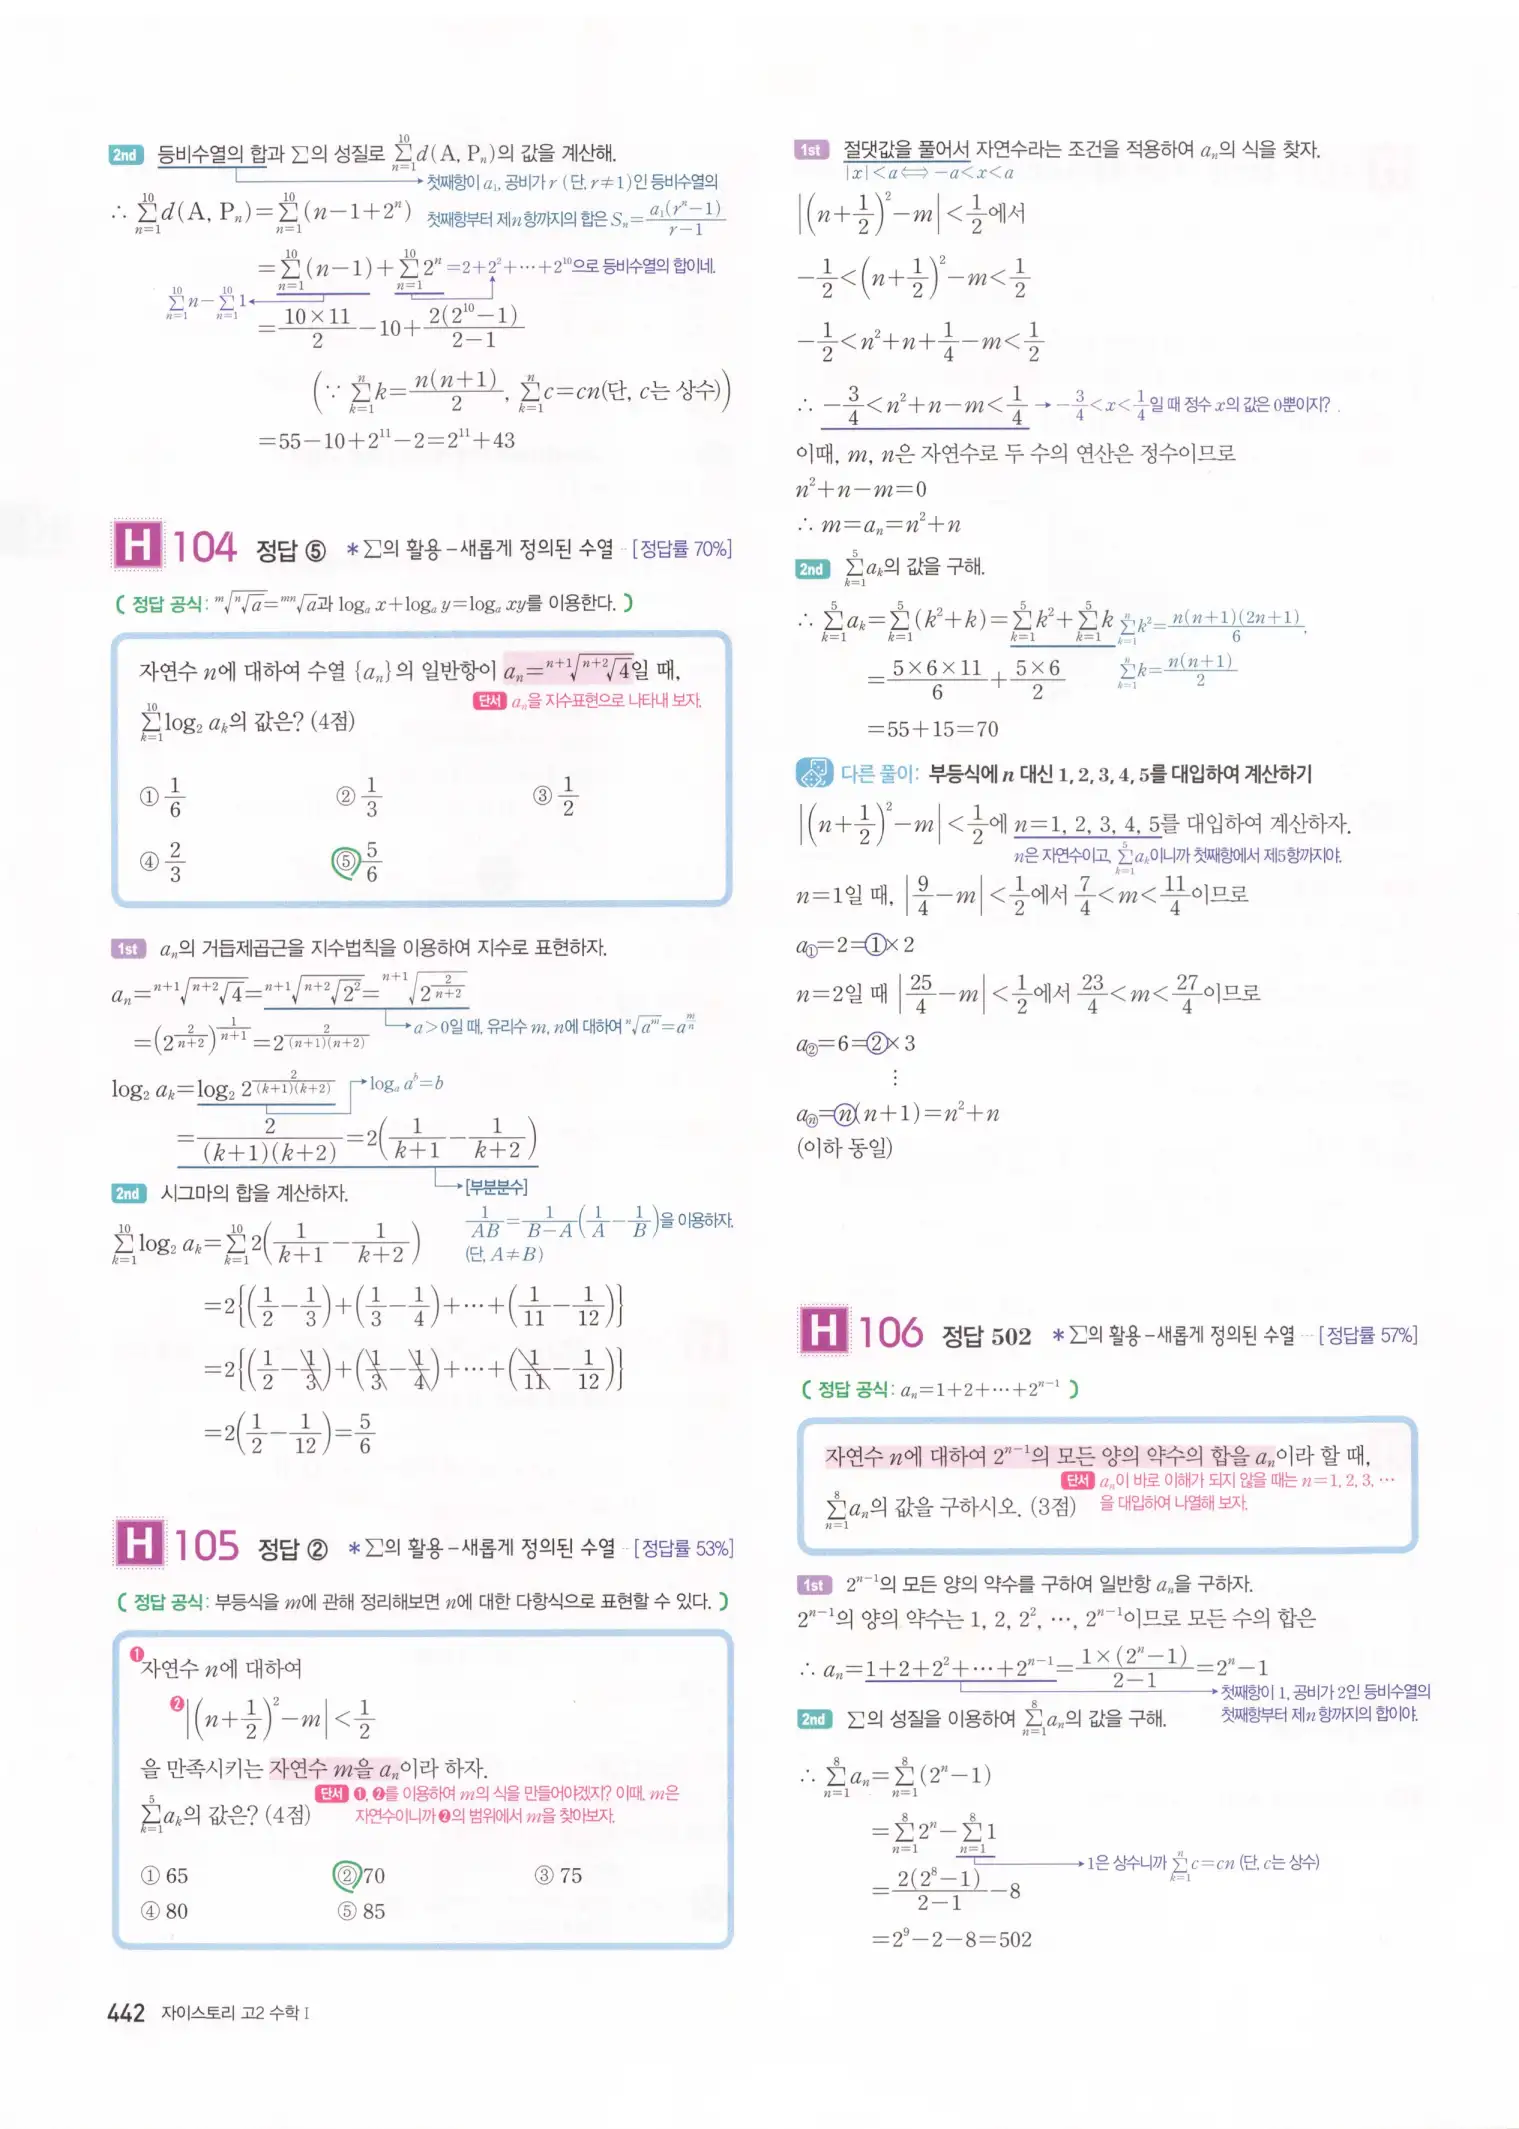 2nd 등비수열의 합과 ∑의 성질로 $\sum_{n=1}^{10} d(A, P_n)$의 값을 계산해.
첫째항이 $a_1$, 공비가 $r$ (단, $r≠1$)인 등비수열의
첫째항부터 제$n$항까지의 합은 $S_n=\frac{a_1(r^n-1)}{r-1}$
∴ $\sum_{n=1}^{10} d(A, P_n)=\sum_{n=1}^{10}(n-1+2^n)$
$=\sum_{n=1}^{10}(n-1)+\sum_{n=1}^{10}2^n$ $=2+2^2+\cdots+2^{10}$으로 등비수열의 합이네.
$\sum_{n=1}^{10}n-\sum_{n=1}^{10}1$
$=\frac{10×11}{2}-10+\frac{2(2^{10}-1)}{2-1}$
(∵ $\sum_{k=1}^{n}k=\frac{n(n+1)}{2}$, $\sum_{k=1}^{n}c=cn$(단, $c$는 상수))
$=55-10+2^{11}-2=2^{11}+43$
H 104 정답 ⑤ *∑의 활용-새롭게 정의된 수열 [정답률 70%]
( 정답 공식: $\sqrt[m]{\sqrt[n]{a}}=\sqrt[mn]{a}$과 $\log_a x+\log_a y=\log_a xy$를 이용한다. )
자연수 $n$에 대하여 수열 $\{a_n\}$의 일반항이 $a_n=\sqrt[n+1]{\sqrt[n+2]{4}}$일 때,
단서 $a_n$을 지수표현으로 나타내 보자.
$\sum_{k=1}^{10}\log_2 a_k$의 값은? (4점)
① $\frac{1}{6}$ ② $\frac{1}{3}$ ③ $\frac{1}{2}$
④ $\frac{2}{3}$ ⑤ $\frac{5}{6}$
1st $a_n$의 거듭제곱근을 지수법칙을 이용하여 지수로 표현하자.
$a_n=\sqrt[n+1]{\sqrt[n+2]{4}}=\sqrt[n+1]{\sqrt[n+2]{2^2}}=\sqrt[n+1]{2^{\frac{2}{n+2}}}$
$=(2^{\frac{2}{n+2}})^{\frac{1}{n+1}}=2^{\frac{2}{(n+1)(n+2)}}$ $a>0$일 때, 유리수 $m$, $n$에 대하여 $\sqrt[n]{a^m}=a^{\frac{m}{n}}$
$\log_2 a_k=\log_2 2^{\frac{2}{(k+1)(k+2)}}$ $\log_a a^b=b$
$=\frac{2}{(k+1)(k+2)}=2(\frac{1}{k+1}-\frac{1}{k+2})$
2nd 시그마의 합을 계산하자.
[부분분수]
$\frac{1}{AB}=\frac{1}{B-A}(\frac{1}{A}-\frac{1}{B})$을 이용하자.
(단, $A≠B$)
$\sum_{k=1}^{10}\log_2 a_k=\sum_{k=1}^{10}2(\frac{1}{k+1}-\frac{1}{k+2})$
$=2\{(\frac{1}{2}-\frac{1}{3})+(\frac{1}{3}-\frac{1}{4})+\cdots+(\frac{1}{11}-\frac{1}{12})\}$
$=2\{(\frac{1}{2}-\frac{1}{3})+(\frac{1}{3}-\frac{1}{4})+\cdots+(\frac{1}{11}-\frac{1}{12})\}$
$=2(\frac{1}{2}-\frac{1}{12})=\frac{5}{6}$
H 105 정답 ② *∑의 활용-새롭게 정의된 수열 [정답률 53%]
( 정답 공식: 부등식을 $m$에 관해 정리해보면 $n$에 대한 다항식으로 표현할 수 있다. )
❶자연수 $n$에 대하여
❷$|(n+\frac{1}{2})^2-m|<\frac{1}{2}$
을 만족시키는 자연수 $m$을 $a_n$이라 하자.
단서 ❶, ❷를 이용하여 $m$의 식을 만들어야겠지? 이때, $m$은
자연수이니까 ❷의 범위에서 $m$을 찾아보자.
$\sum_{k=1}^{5}a_k$의 값은? (4점)
① 65 ② 70 ③ 75
④ 80 ⑤ 85
442 자이스토리 고2 수학 I
1st 절댓값을 풀어서 자연수라는 조건을 적용하여 $a_n$의 식을 찾자.
$|x|<a \Longleftrightarrow -a<x<a$
$|(n+\frac{1}{2})^2-m|<\frac{1}{2}$에서
$-\frac{1}{2}<(n+\frac{1}{2})^2-m<\frac{1}{2}$
$-\frac{1}{2}<n^2+n+\frac{1}{4}-m<\frac{1}{2}$
∴ $-\frac{3}{4}<n^2+n-m<\frac{1}{4}$ → $-\frac{3}{4}<x<\frac{1}{4}$일 때 정수 $x$의 값은 0뿐이지?
이때, $m$, $n$은 자연수로 두 수의 연산은 정수이므로
$n^2+n-m=0$
∴ $m=a_n=n^2+n$
2nd $\sum_{k=1}^{5}a_k$의 값을 구해.
∴ $\sum_{k=1}^{5}a_k=\sum_{k=1}^{5}(k^2+k)=\sum_{k=1}^{5}k^2+\sum_{k=1}^{5}k$ $\sum_{k=1}^{n}k^2=\frac{n(n+1)(2n+1)}{6}$,
$=\frac{5×6×11}{6}+\frac{5×6}{2}$ $\sum_{k=1}^{n}k=\frac{n(n+1)}{2}$
$=55+15=70$
다른 풀이: 부등식에 $n$ 대신 1, 2, 3, 4, 5를 대입하여 계산하기
$|(n+\frac{1}{2})^2-m|<\frac{1}{2}$에 $n=1, 2, 3, 4, 5$를 대입하여 계산하자.
$n$은 자연수이고, $\sum_{k=1}^{5}a_k$이니까 첫째항에서 제5항까지야.
$n=1$일 때, $|\frac{9}{4}-m|<\frac{1}{2}$에서 $\frac{7}{4}<m<\frac{11}{4}$이므로
$a_①=2=①×2$
$n=2$일 때 $|\frac{25}{4}-m|<\frac{1}{2}$에서 $\frac{23}{4}<m<\frac{27}{4}$이므로
$a_②=6=②×3$
⋮
$a_ⓝ=ⓝ(n+1)=n^2+n$
(이하 동일)
H 106 정답 502 *∑의 활용-새롭게 정의된 수열 [정답률 57%]
( 정답 공식: $a_n=1+2+\cdots+2^{n-1}$ )
자연수 $n$에 대하여 $2^{n-1}$의 모든 양의 약수의 합을 $a_n$이라 할 때,
단서 $a_n$이 바로 이해가 되지 않을 때는 $n=1, 2, 3, \cdots$
을 대입하여 나열해 보자.
$\sum_{n=1}^{8}a_n$의 값을 구하시오. (3점)
1st $2^{n-1}$의 모든 양의 약수를 구하여 일반항 $a_n$을 구하자.
$2^{n-1}$의 양의 약수는 $1, 2, 2^2, \cdots, 2^{n-1}$이므로 모든 수의 합은
∴ $a_n=1+2+2^2+\cdots+2^{n-1}=\frac{1×(2^n-1)}{2-1}=2^n-1$
첫째항이 1, 공비가 2인 등비수열의
첫째항부터 제$n$항까지의 합이야.
2nd ∑의 성질을 이용하여 $\sum_{n=1}^{8}a_n$의 값을 구해.
∴ $\sum_{n=1}^{8}a_n=\sum_{n=1}^{8}(2^n-1)$
$=\sum_{n=1}^{8}2^n-\sum_{n=1}^{8}1$
1은 상수니까 $\sum_{k=1}^{n}c=cn$ (단, $c$는 상수)
$=\frac{2(2^8-1)}{2-1}-8$
$=2^9-2-8=502$